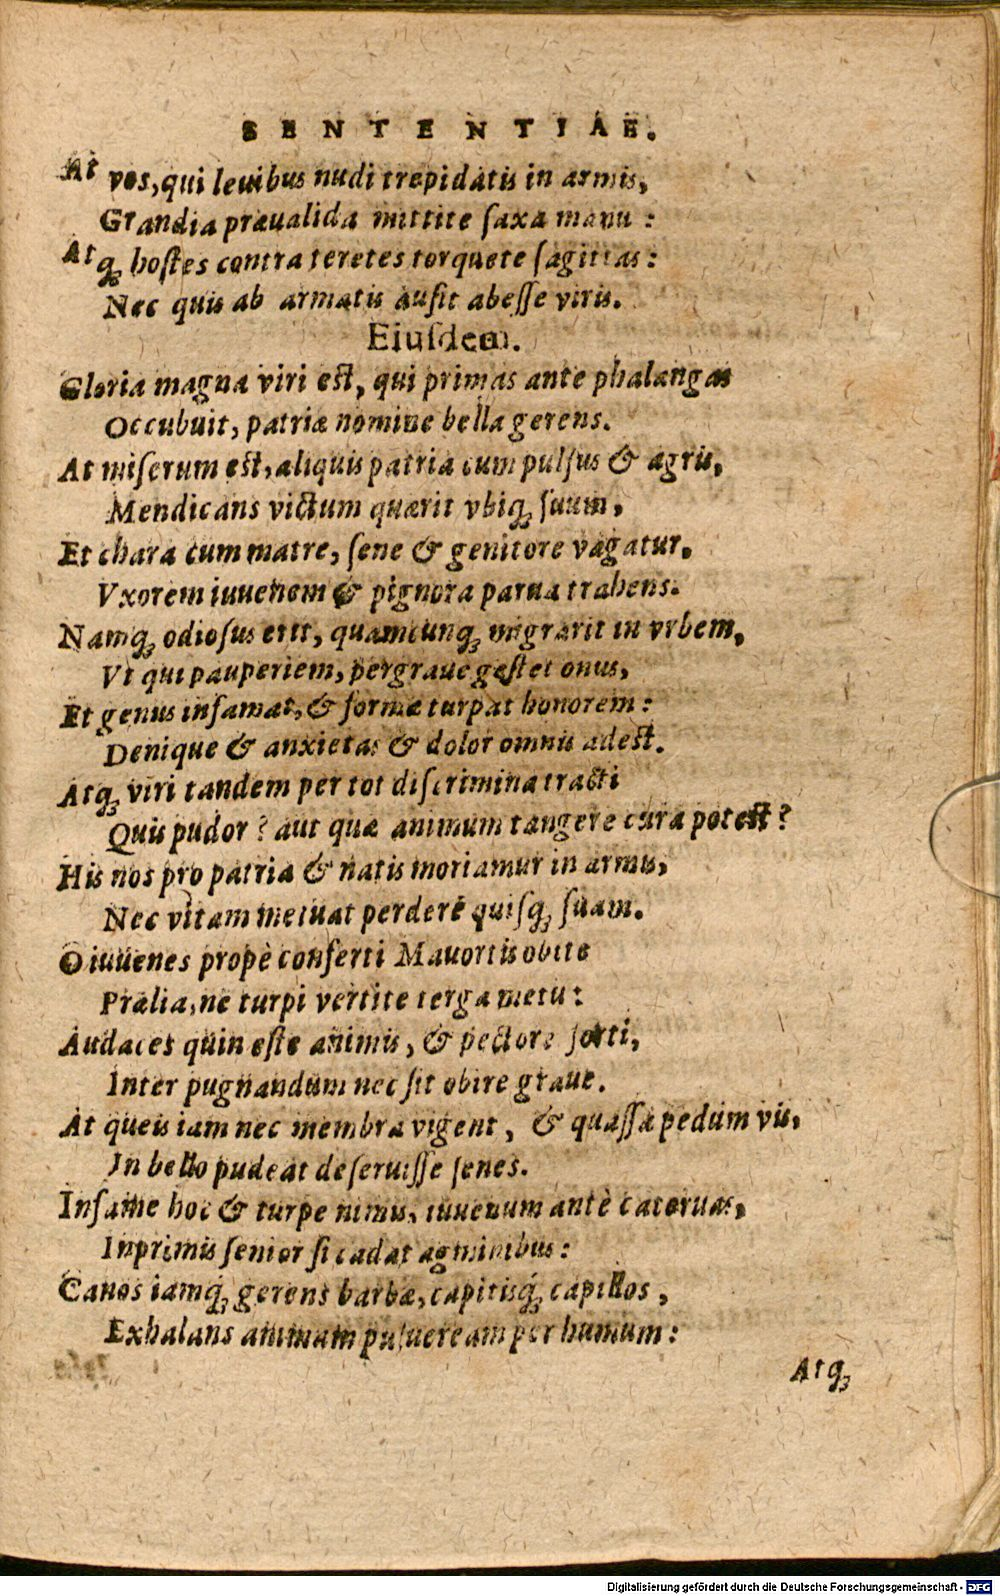 SENTENTIAE.
At vos, qui leuibus nudi trepidatis in armis,
Grandia præualida mittite ſaxa manu :
Atq; hoſtes contra teretes torquete ſagittas :
Nec quis ab armatis auſit abeſſe viris.
Eiuſdem.
Gloria magna viri eſt, qui primas ante phalangas
Occubuit, patriæ nomine bella gerens.
At miſerum eſt, aliquis patria cum pulſus & agris,
Mendicans victum quærit vbiq; ſuum,
Et chara cum matre, ſene & genitore vagatur.
Vxorem iuuenem & pignora parua trahens.
Namq; odioſus erit, quamcunq; migrarit in vrbem,
Vt qui pauperiem, pergraue geſtet onus,
Et genus infamat, & formæ turpat honorem :
Denique & anxietas & dolor omnis adeſt.
Atq; viri tandem per tot diſcrimina tracti
Quis pudor ? aut quæ animum tangere cura poteſt ?
His nos pro patria & natis moriamur in armis,
Nec vitam metuat perdere quiſq; ſuam.
O iuuenes propè conferti Mauortis obite
Prælia, ne turpi vertite terga metu :
Audaces quin eſte animis, & pectore forti,
Inter pugnandum nec ſit obire graue.
At queis iam nec membra vigent, & quaſſa pedum vis,
In bello pudeat deſeruiſſe ſenes.
Infame hoc & turpe nimis, iuuenum antè cateruas,
Inprimis ſenior ſi cadat agminibus :
Canos iamq́; gerens barbæ, capitisq́; capillos,
Exhalans animam puluerea͏m per humum :
Atq;
Digitalisierung gefördert durch die Deutsche Forschungsgemeinschaft - DFG